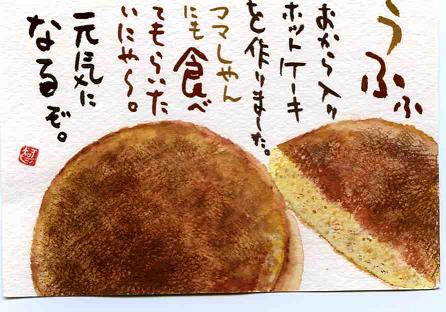 うふふ
おから入り
ホットケーキ
を作りました。
ママしゃん
にも食べ
てもらいた
いにゃ〜。
元気に
なるぞ。